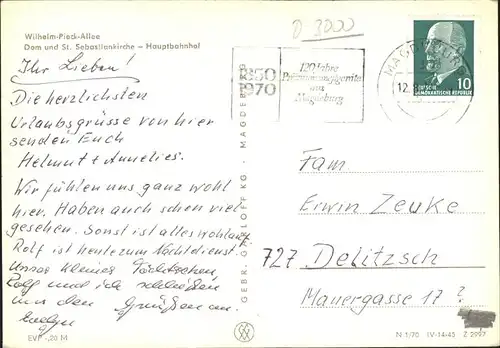 Wilhelm-Pieck-Allee
Dom und St. Sebastiankirche — Hauptbahnhof
D 3000
1850
1970
120 Jahre
aus
Magdeburg
MAGDEBURG
12.
DEUTSCHE
DEMOKRATISCHE REPUBLIK
10
Ihr Lieben!
Die herzlichsten
Urlaubsgrüsse von hier
senden Euch
Helmut + Annelies.
Wir fühlen uns ganz wohl
hier. Haben auch schon viel
gesehen. Sonst ist alles wohlauf
Rolf ist heute zum Nachtdienst.
Unser kleines Töchterchen,
Rolf und ich schließen
uns den Grüßen an.
Evelyn
GEBR. GARLOFF KG · MAGDEBURG
Fam
Erwin Zeuke
727 Delitzsch
Mauergasse 17 ?
EVP -,20 M
N 1/70 IV-14-45 Z 2997